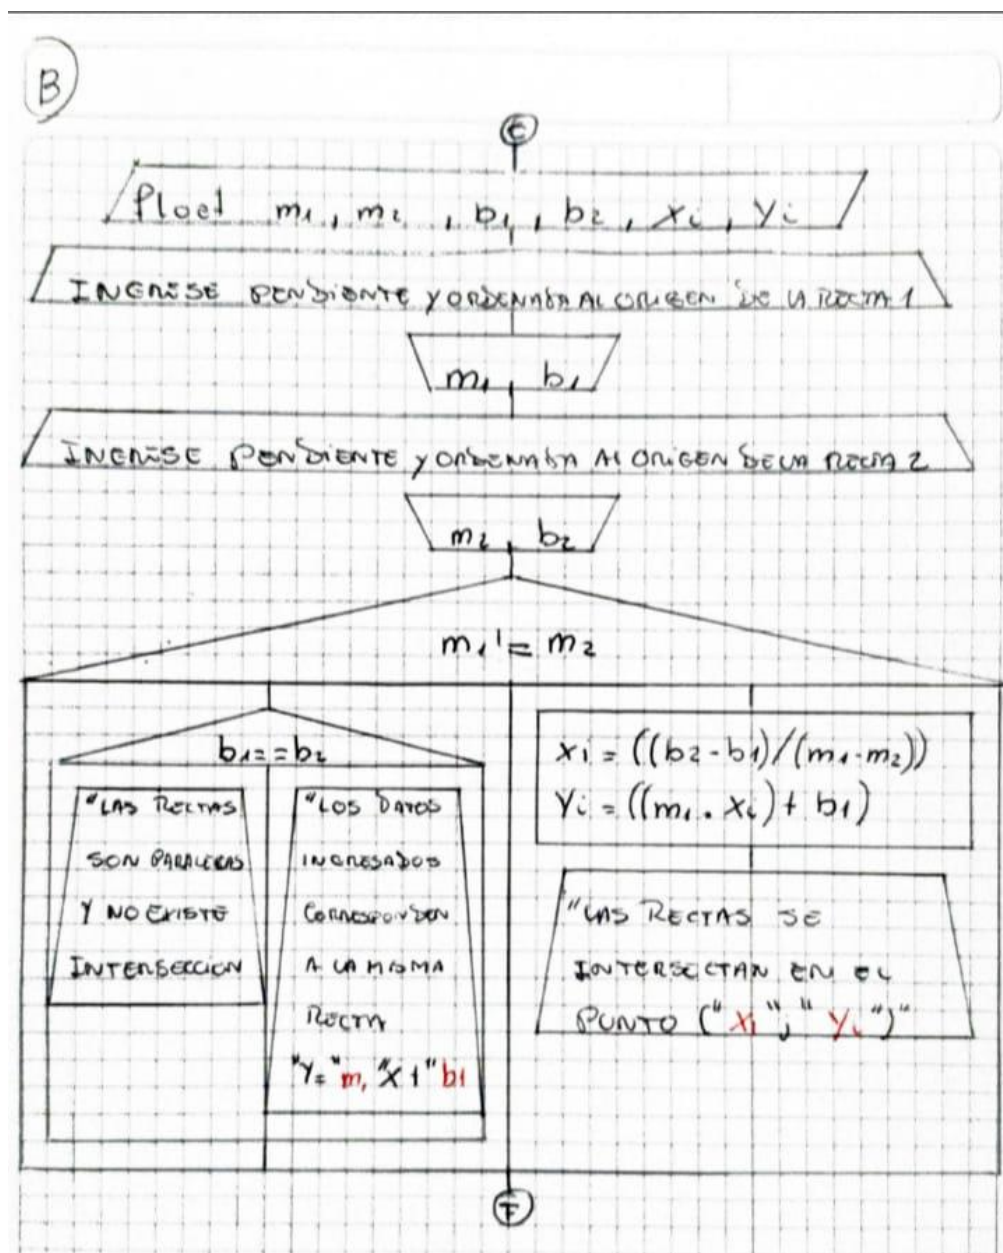 B
C
Float m1, m2, b1, b2, xi, yi
INGRESE PENDIENTE Y ORDENADA AL ORIGEN DE LA RECTA 1
m1, b1
INGRESE PENDIENTE Y ORDENADA AL ORIGEN DE LA RECTA 2
m2, b2
m1 != m2
b1==b2
"LAS RECTAS
SON PARALELAS
Y NO EXISTE
INTERSECCION
"LOS DATOS
INGRESADOS
CORRESPONDEN
A LA MISMA
RECTA
"Y="m1"X+"b1
xi = ((b2-b1)/(m1-m2))
Yi = ((m1.xi)+b1)
"LAS RECTAS SE
INTERSECTAN EN EL
PUNTO ("xi";"yi")"
F